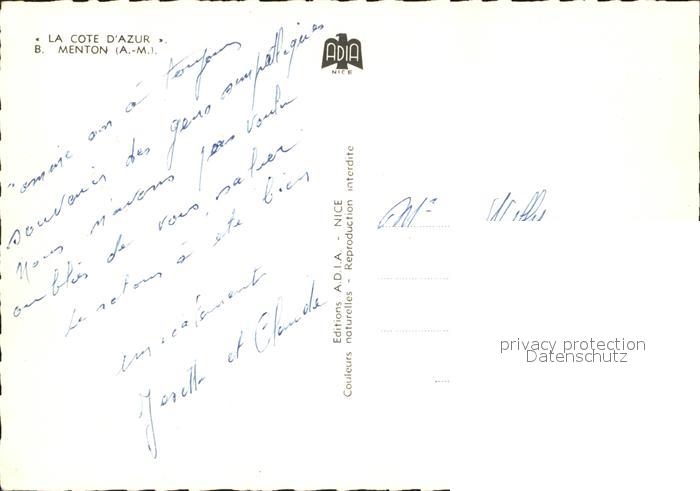 « LA COTE D'AZUR ».
B. MENTON (A.-M.).
ADIA
NICE
comme on a toujours
souvenir des gens sympathiques
Nous n'avons pas voulu
oubliés de vous saluer
Le retour a été bien
amicalement
Josette et Claude
Editions A.D.I.A. - NICE
Couleurs naturelles - Reproduction interdite
Mr
privacy protection
Datenschutz